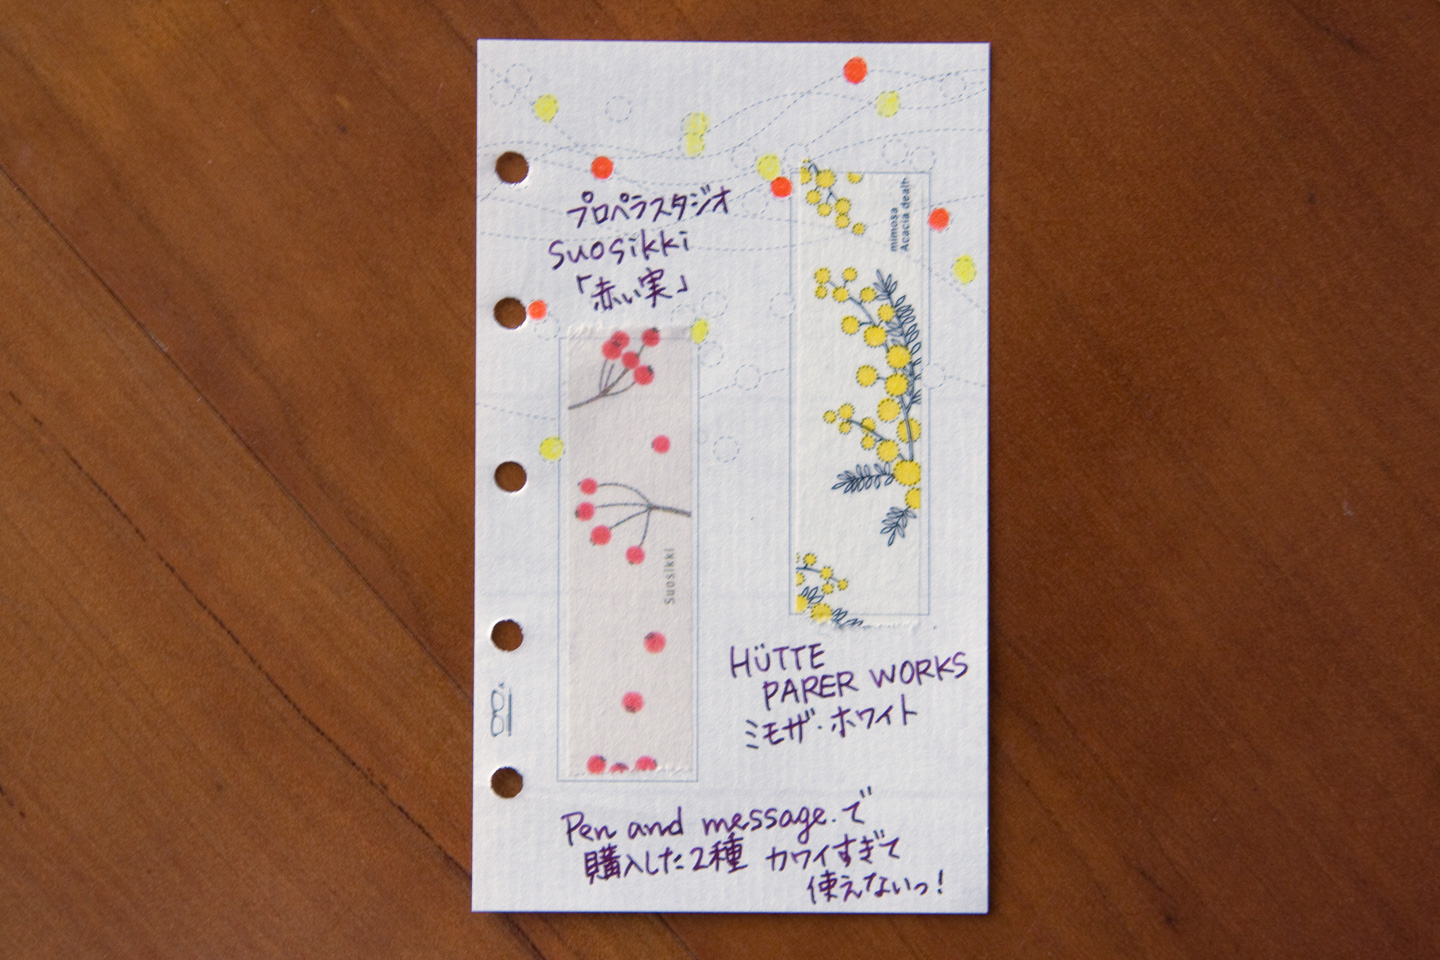 プロペラスタジオ
Suosikki
「赤い実」
Suosikki
mimosa
Acacia dealb
HÜTTE
PARER WORKS
ミモザ・ホワイト
Pen and message.で
購入した2種 カワイすぎて
使えないっ!